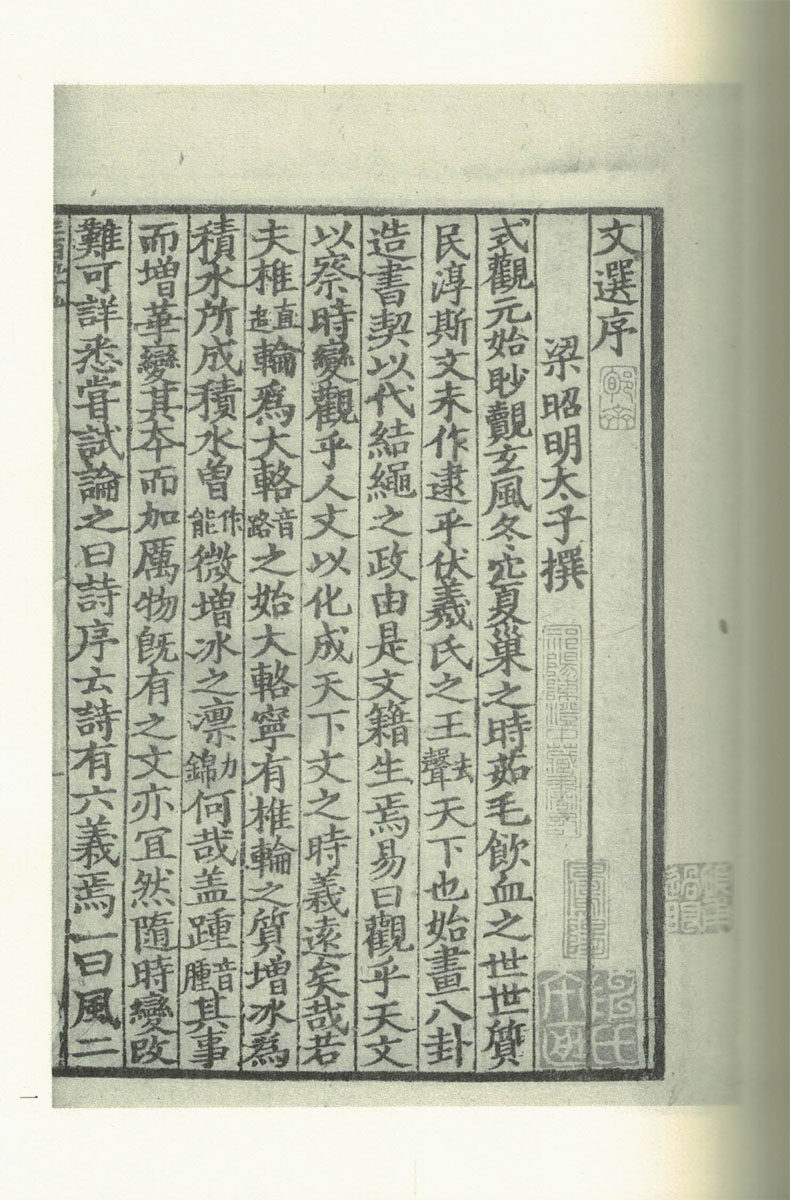 文選序
梁昭明太子撰
式觀元始眇覿玄風冬穴夏巢之時茹毛飲血之世世質
民淳斯文未作逮乎伏羲氏之王去聲天下也始畫八卦
造書契以代結繩之政由是文籍生焉易曰觀乎天文
以察時變觀乎人文以化成天下文之時義遠矣哉若
夫椎直追輪爲大輅音路之始大輅寧有椎輪之質增冰爲
積水所成積水曾作能微增冰之凛力錦何哉盖踵音腫其事
而增華變其本而加厲物旣有之文亦冝然隨時變改
難可詳悉嘗試論之曰詩序云詩有六義焉一曰風二
一